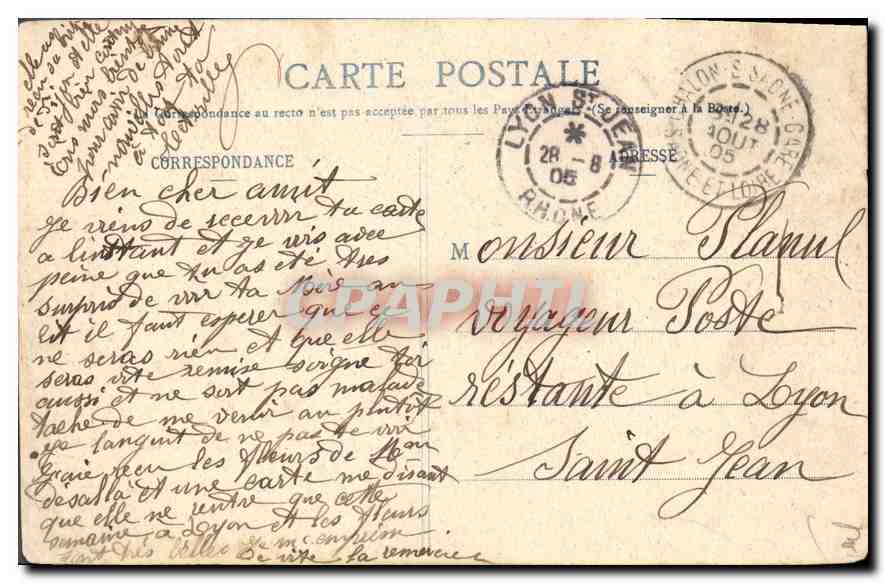 CARTE POSTALE
La Correspondance au recto n'est pas acceptée par tous les Pays Etrangers (Se renseigner à la Poste.)
CORRESPONDANCE
ADRESSE
LYON ST JEAN
*
28 - 8
05
RHONE
CHALON-S-SAONE-GARE
28
AOUT
05
SAONE ET LOIRE
elle a
reçu sa
bien
bientôt
nouvelles
à ta
Bien cher amit
Je viens de recevoir ta carte
a linstant et je vois avec
peine que tu as été tres
surpris de voir ta Mère au
lit il faut esperer que ce
ne seras rien et que elle
seras vite remise soigne toi
aussi et ne sort pas malade
tache de me venir au plutôt
je languit de ne pas te voir
Jaie recu les fleurs de
et une carte me disant
que elle ne rentre que cette
semaine à Lyon et les fleurs
sont très belles Je m'empresse
de vite la remercier
Monsieur Planul
voyageur Poste
réstante à Lyon
Saint Jean
CPAPHIL